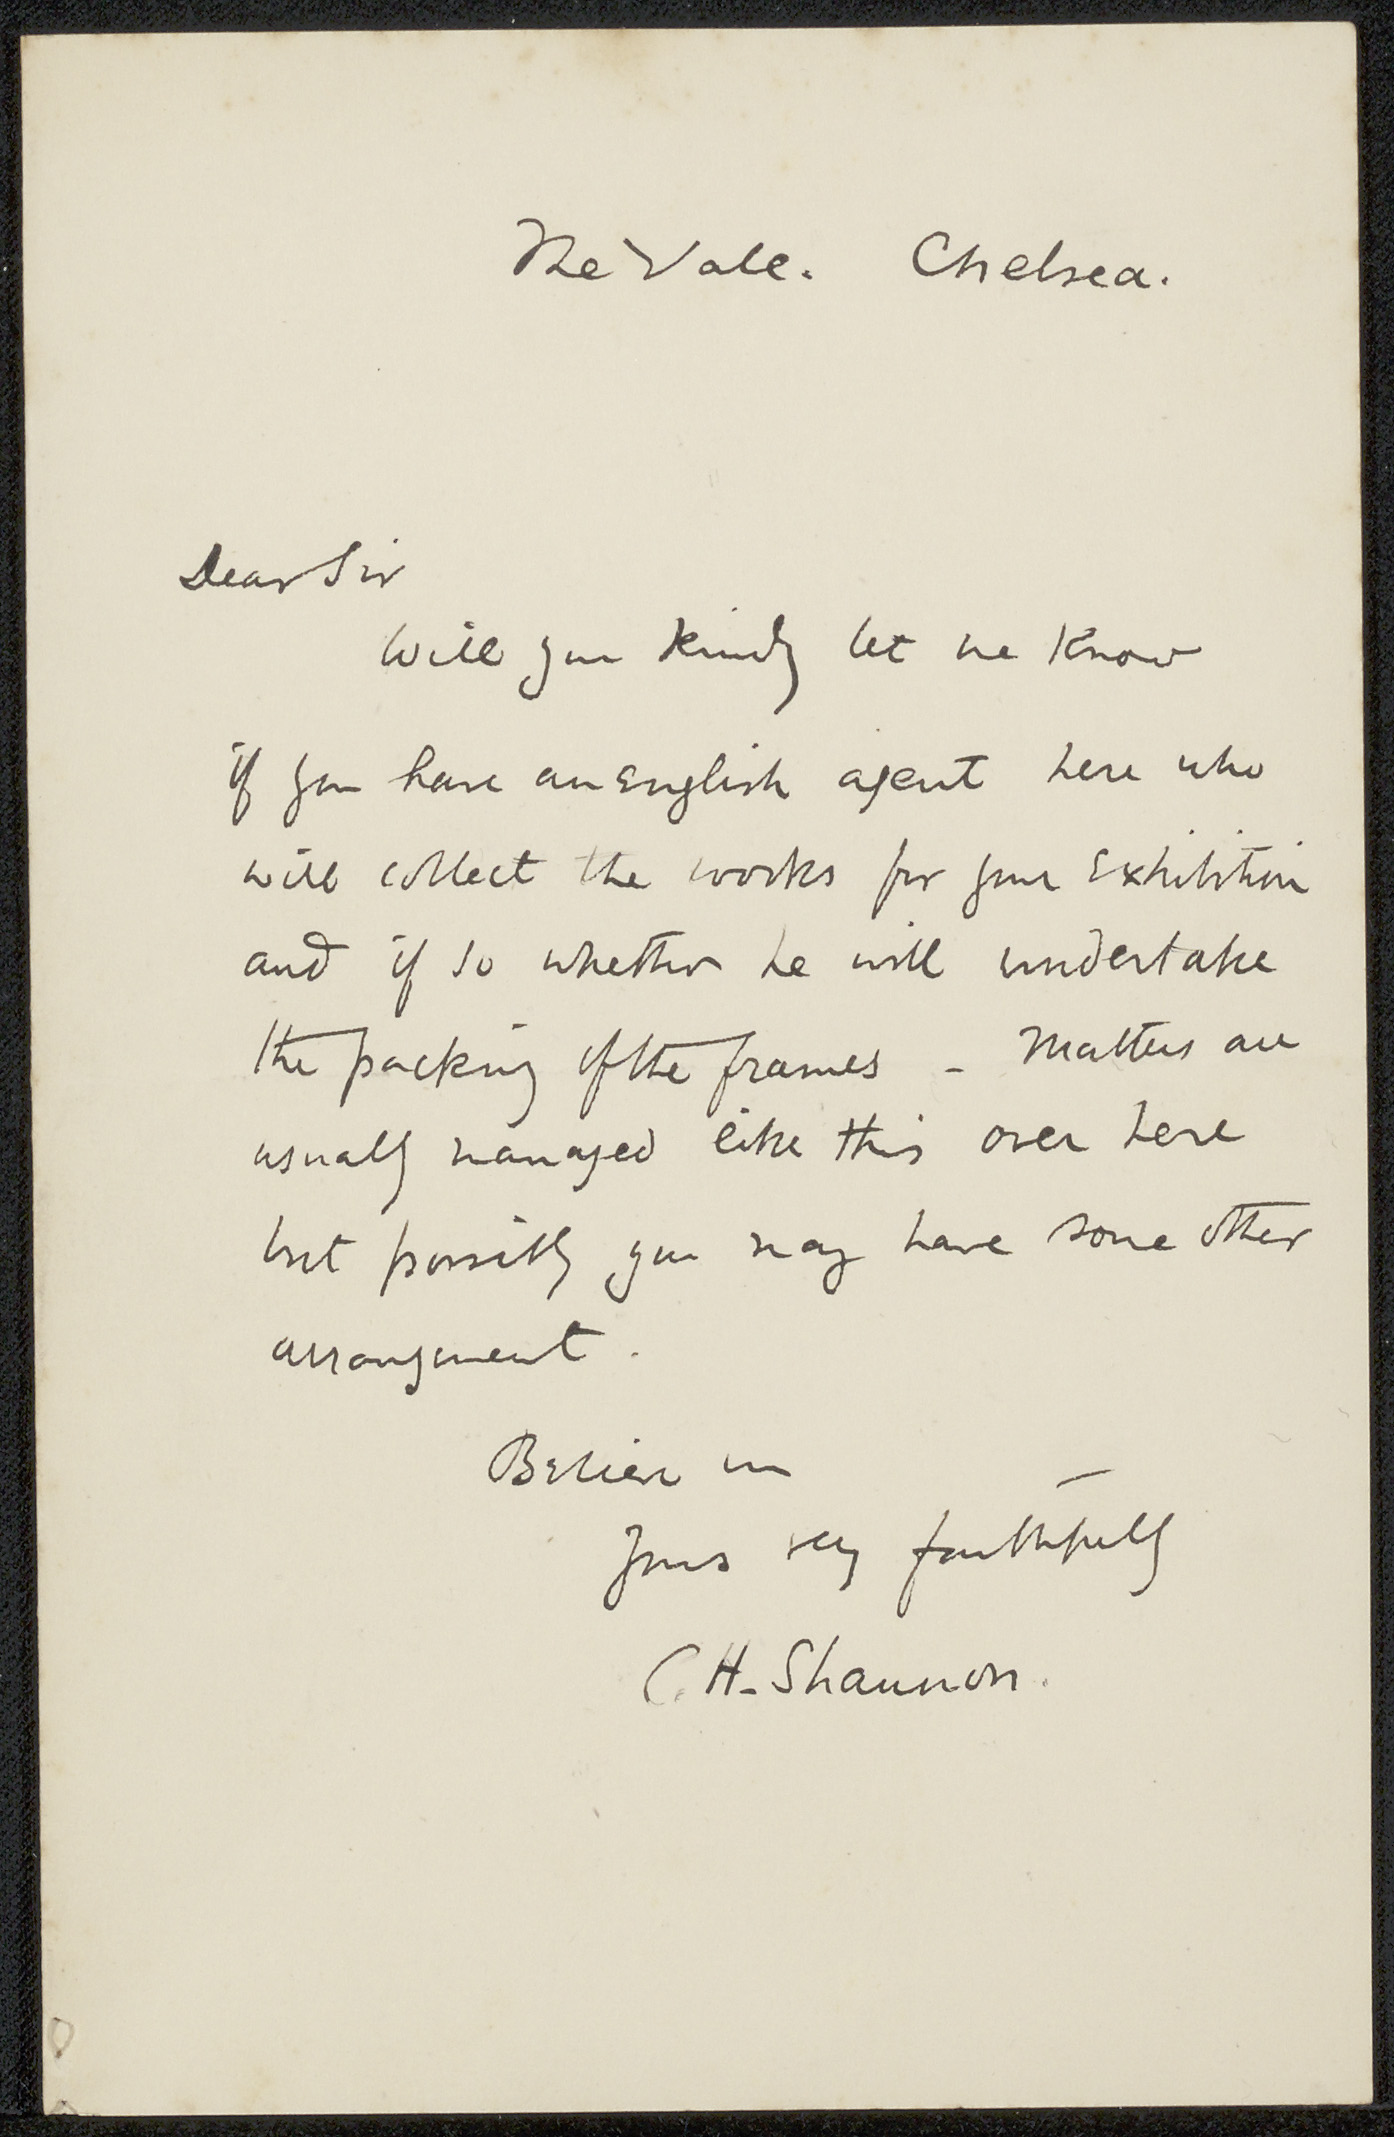 The Vale. Chelsea.
Dear Sir
Will you kindly let me know
if you have an English agent here who
will collect the works for your Exhibition
and if so whether he will undertake
the packing of the frames - Matters are
usually managed like this over here
but possibly you may have some other
arrangment.
Believe me
Yours very faithfully
C. H. Shannon.